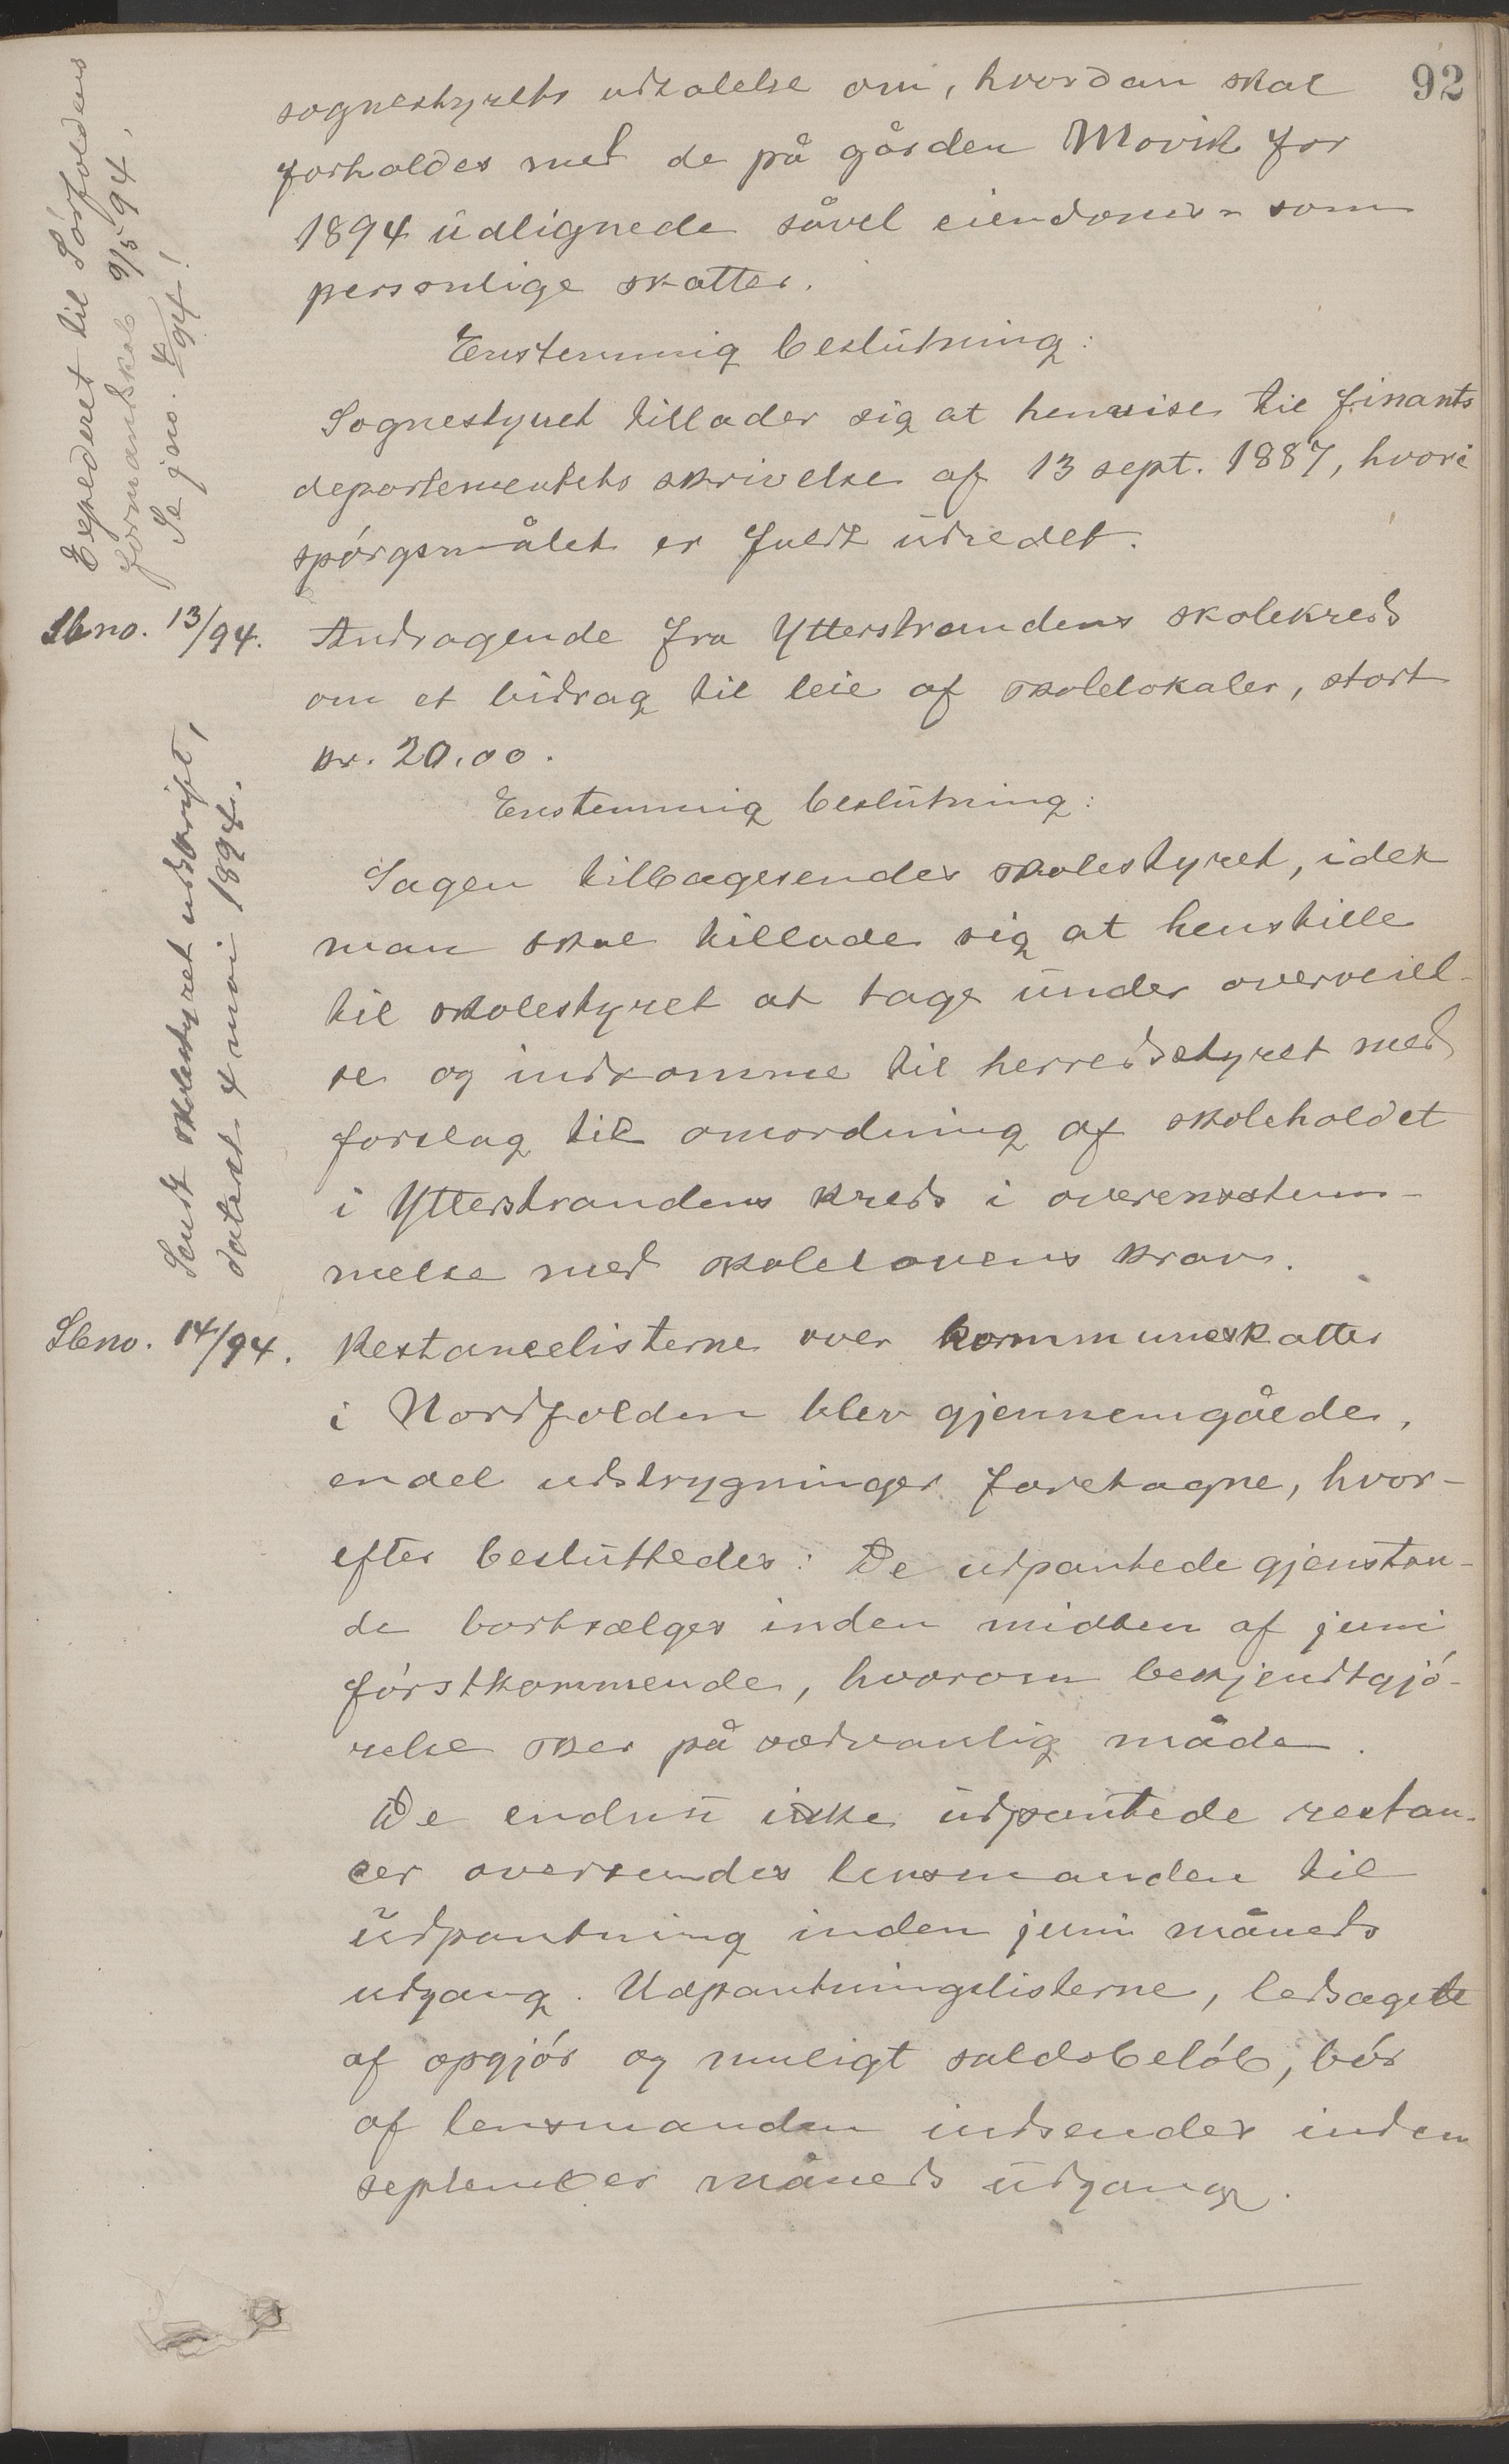 92
sognestyrets udtalelse om, hvordan skal
forholdes med de på gården Movik for
1894 udlignede såvel eiendoms- som
personlige skatter.
Enstemmig beslutning:
Sognestyret tillader sig at henvise til finants
departementets skrivelse af 13 sept. 1887, hvori
spórgsmålet er fuldt udredet.
Expederet til Sórfoldens
formandskab 9/5 94,
Se jno. /94!
Sbno. 13/94.
Andragende fra Ytterstrandens skolekreds
om et bidrag til leie af skolelokaler, stort
kr. 20.00.
Enstemmig beslutning:
Sagen tilbagesendes skolestyret, idet
man skal tillade sig at henstille
til skolestyret at tage under overveiel-
se og indkomme til herredsstyret med
forslag til omordning af skoleholdet
i Ytterstrandens kreds i overensstem-
melse med skolelovens krav.
Sendt skolestyret udskrift,
dateret 4 mai 1894.
Sbno. 14/94.
Restancelisterne over kommuneskatter
i Nordfolden blev gjennemgåede,
endel udstrygninger foretagne, hvor-
efter besluttedes: De udpantede gjenstan-
de bortsælges inden midten af juni
fórstkommende, hvorom bekjendtgjó-
relse sker på sædvanlig måde.
De endnu ikke udpantede restan-
cer oversendes lensmanden til
udpantning inden juni måneds
udgang. Udpantningslisterne, ledsagede
af opgjór og muligt saldobelób, bór
af lensmanden indsendes inden
september måneds udgang.